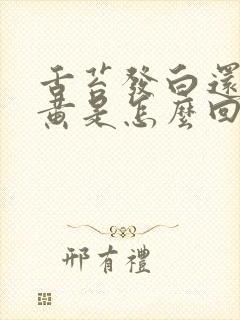 舌苔發白還
黃是怎麼回
邢有禮